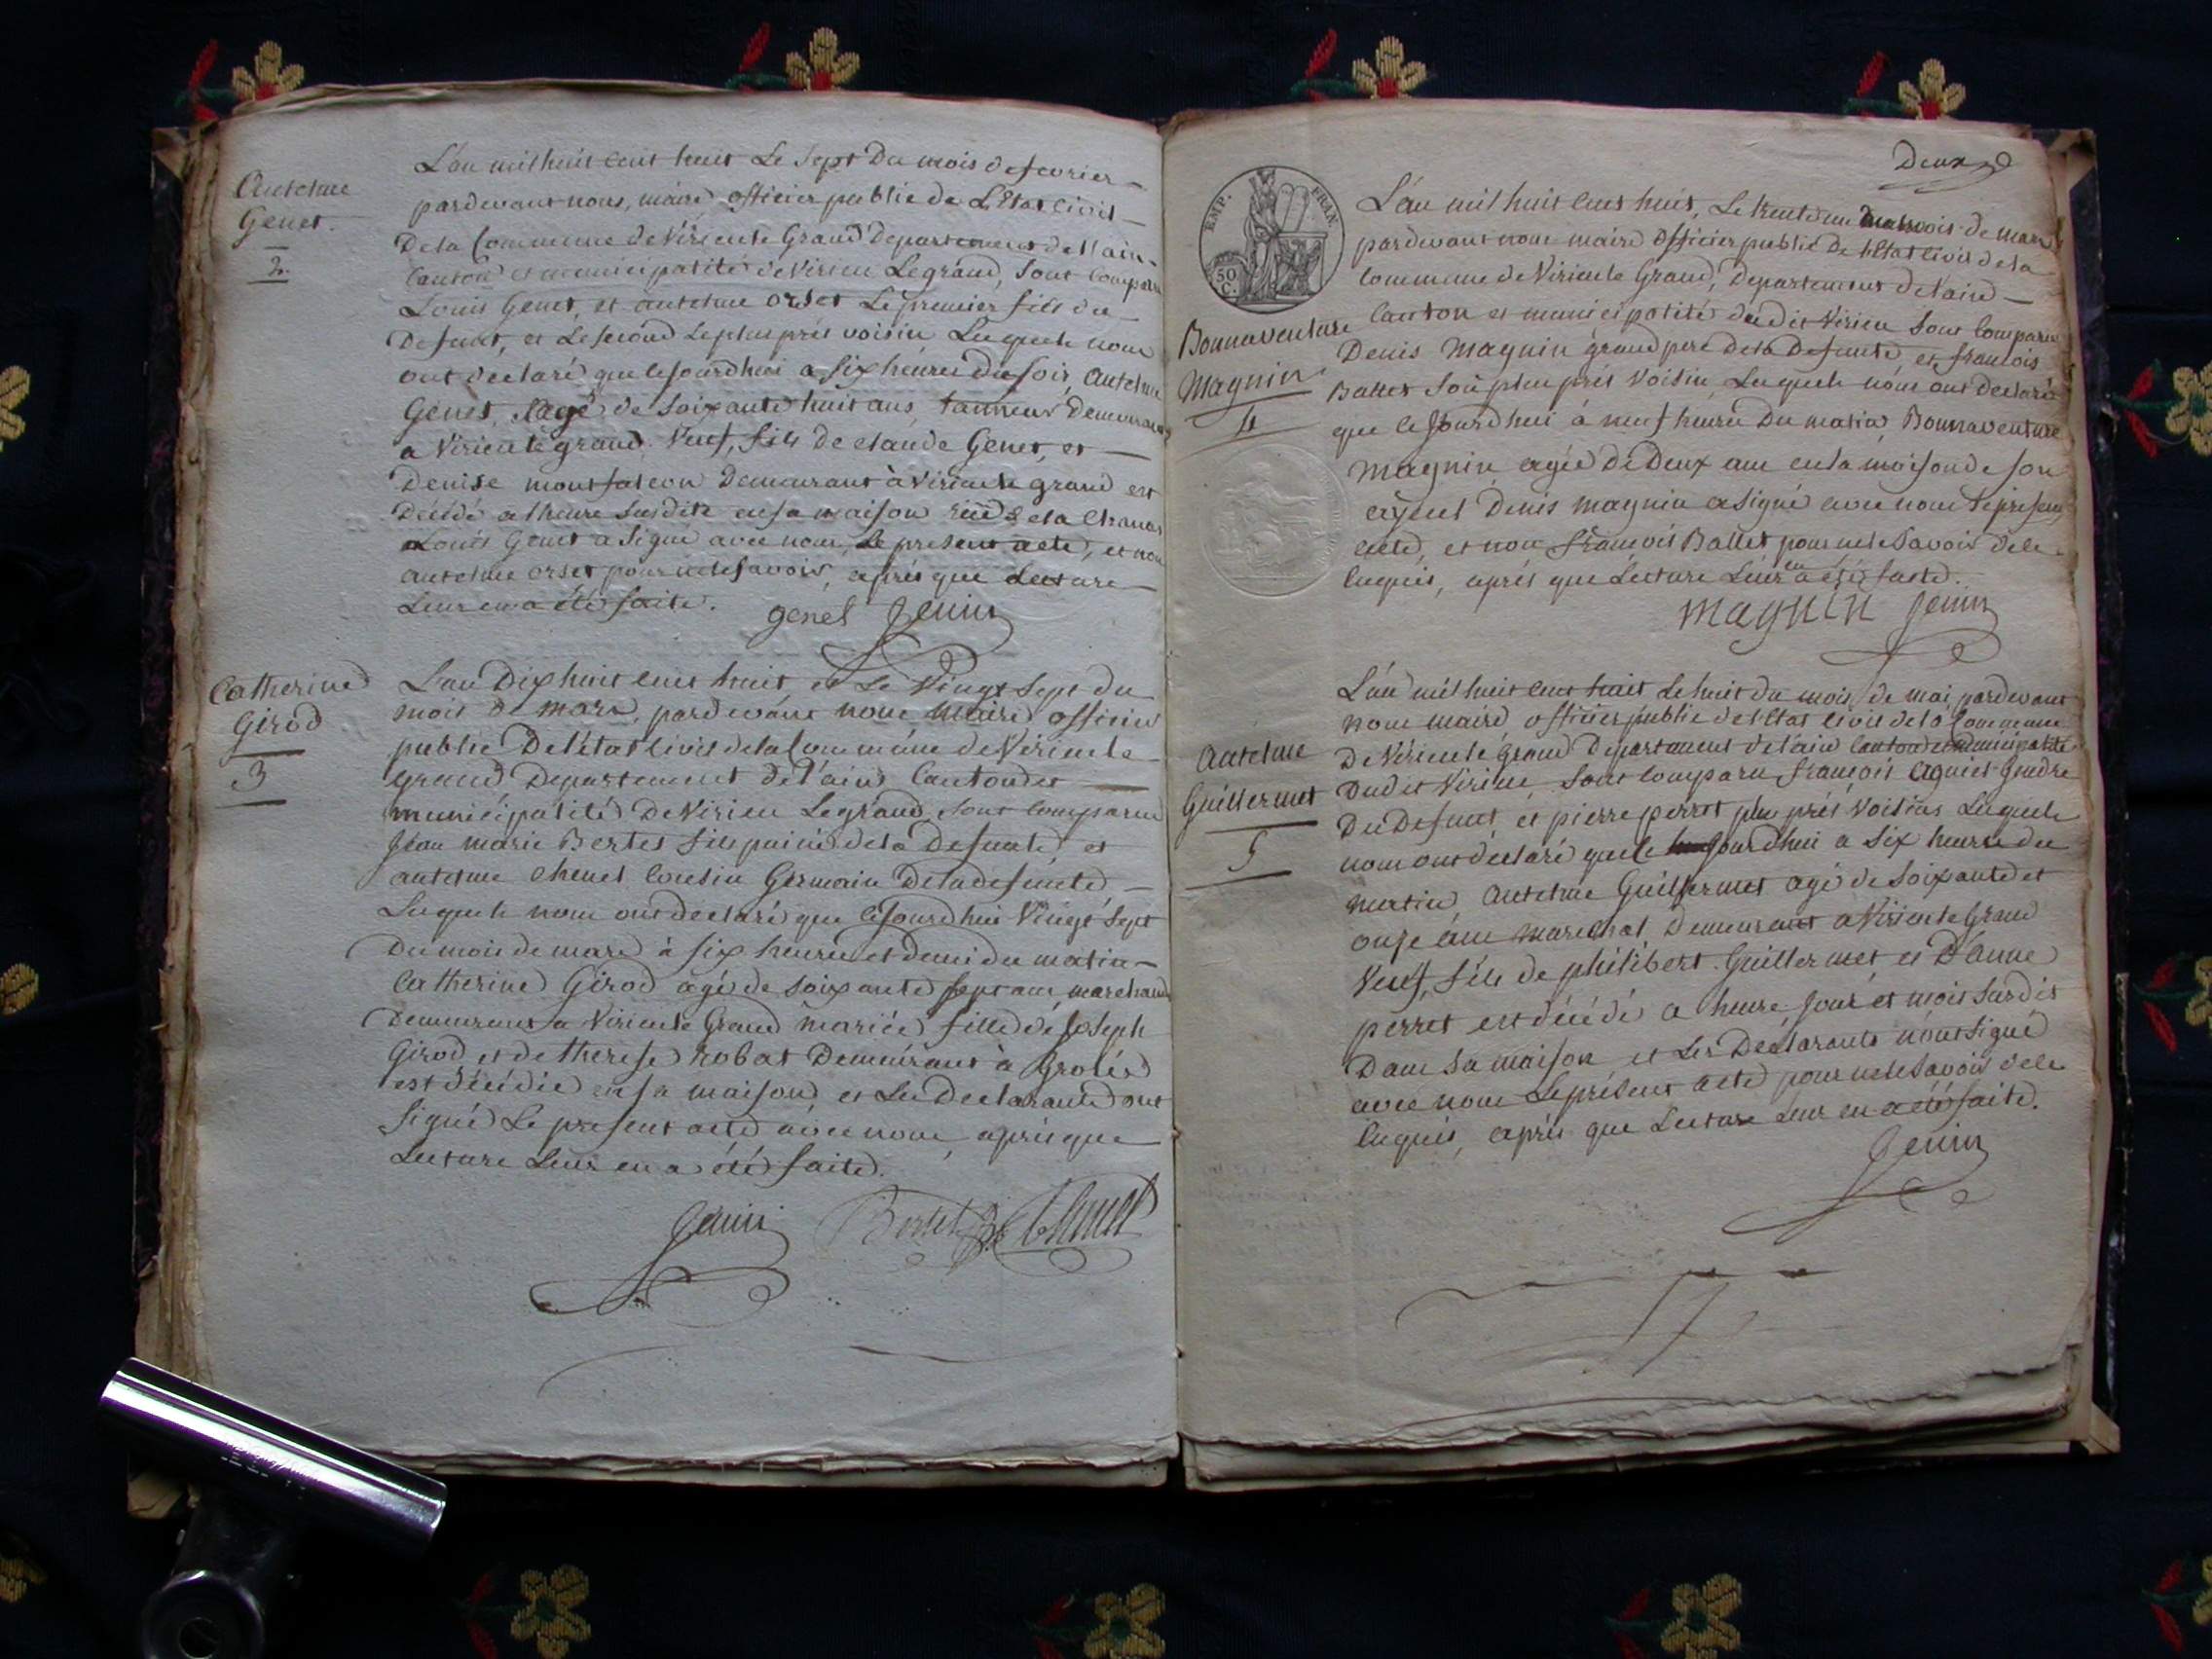 Antelme
Genet.
2.
L'an mil huit cent huit Le Sept Du mois de fevrier
pardevant nous, maire officier public de L'Etat civil
De la Commune de Virieu le Grand Departement de l'ain
Canton et municipalité de Virieu Le grand, sont comparu
Louis Genet, et antelme orset Le premier fils du
Defunt, et Le second Le plus près voisin Lesquels nous
ont declaré que cejourdhui a six heures du soir, Antelme
Genet, agé de soixante huit ans, tanneur Demeurant
a Virieu le grand. Veuf, fils de claude Genet, et
Denise montfalcon Demeurant à Virieu le grand est
Décédé a lheure susdite en sa maison
Louis Genet a signé avec nous, Le present acte, et non
antelme orset pour ne le savoir, après que Lecture
Leur en a été faite.
genet Jenin
Catherine
Girod
3
L'an Dix huit cent huit, et Le Vingt sept du
mois de mars, pardevant nous maire officier
public De l'état civil de la Commune de Virieu le
grand Departement de l'ain Canton et
municipalité De Virieu Le grand, sont comparu
Jean marie Bertet fils puiné de la Defunte, et
antelme Chenet Cousin Germain De la defunte
Lesquels nous ont declaré que cejourdhui Vingt sept
Du mois de mars à six heures et demi du matin
Catherine Girod agé de soixante sept ans, marchand
Demeurant a Virieu le Grand mariée fille de Joseph
Girod et de therese robat Demeurant à Grolée
est décédée en sa maison, et Les Declarants ont
signé Le present acte avec nous, après que
Lecture Leur en a été faite.
Jenin Bertet Chenet
Deux
EMP. FRAN.
50
C.
Bonnaventure
Magnin
4
L'an mil huit cent huit, Le trente un du mois de mars
pardevant nous maire officier public De L'Etat civil de la
commune de Virieu le Grand, Departement de l'ain
Canton et municipalité du dit Virieu sont comparu
Denis Magnin grand pere De la Defunte, et francois
Ballet son plus près voisin, Lesquels nous ont declaré
que cejourdhui à neuf heures Du matin, Bonnaventure
Magnin agée De Deux ans en la maison de son
ayeul Denis magnin a signé avec nous Le present
acte, et non francois Ballet, pour ne le Savoir de ce
enquis, après que Lecture Leur en a été faite.
magnin Jenin
Antelme
Guillermet
5
L'an mil huit cent huit Le huit du mois de mai, pardevant
nous maire officier public de l'Etat civil de la Commune
De Virieu le grand Departement de l'ain Canton et municipalité
Dudit Virieu, sont comparu francois aguiet gendre
Du Defunt, et pierre perret plus près Voisins Lesquels
nous ont declaré que ce jourdhui a six heures du
matin Antelme Guillermet agé de soixante et
onze ans marechal Demeurant a Virieu le Grand
Veuf, fils de philibert Guillermet et D'anne
perret est décédé a heure jour et mois susdit
Dans sa maison et Les Declarants n'ont signé
avec nous Le présent acte pour ne le savoir de ce
enquis, après que Lecture Leur en a été faite.
Jenin